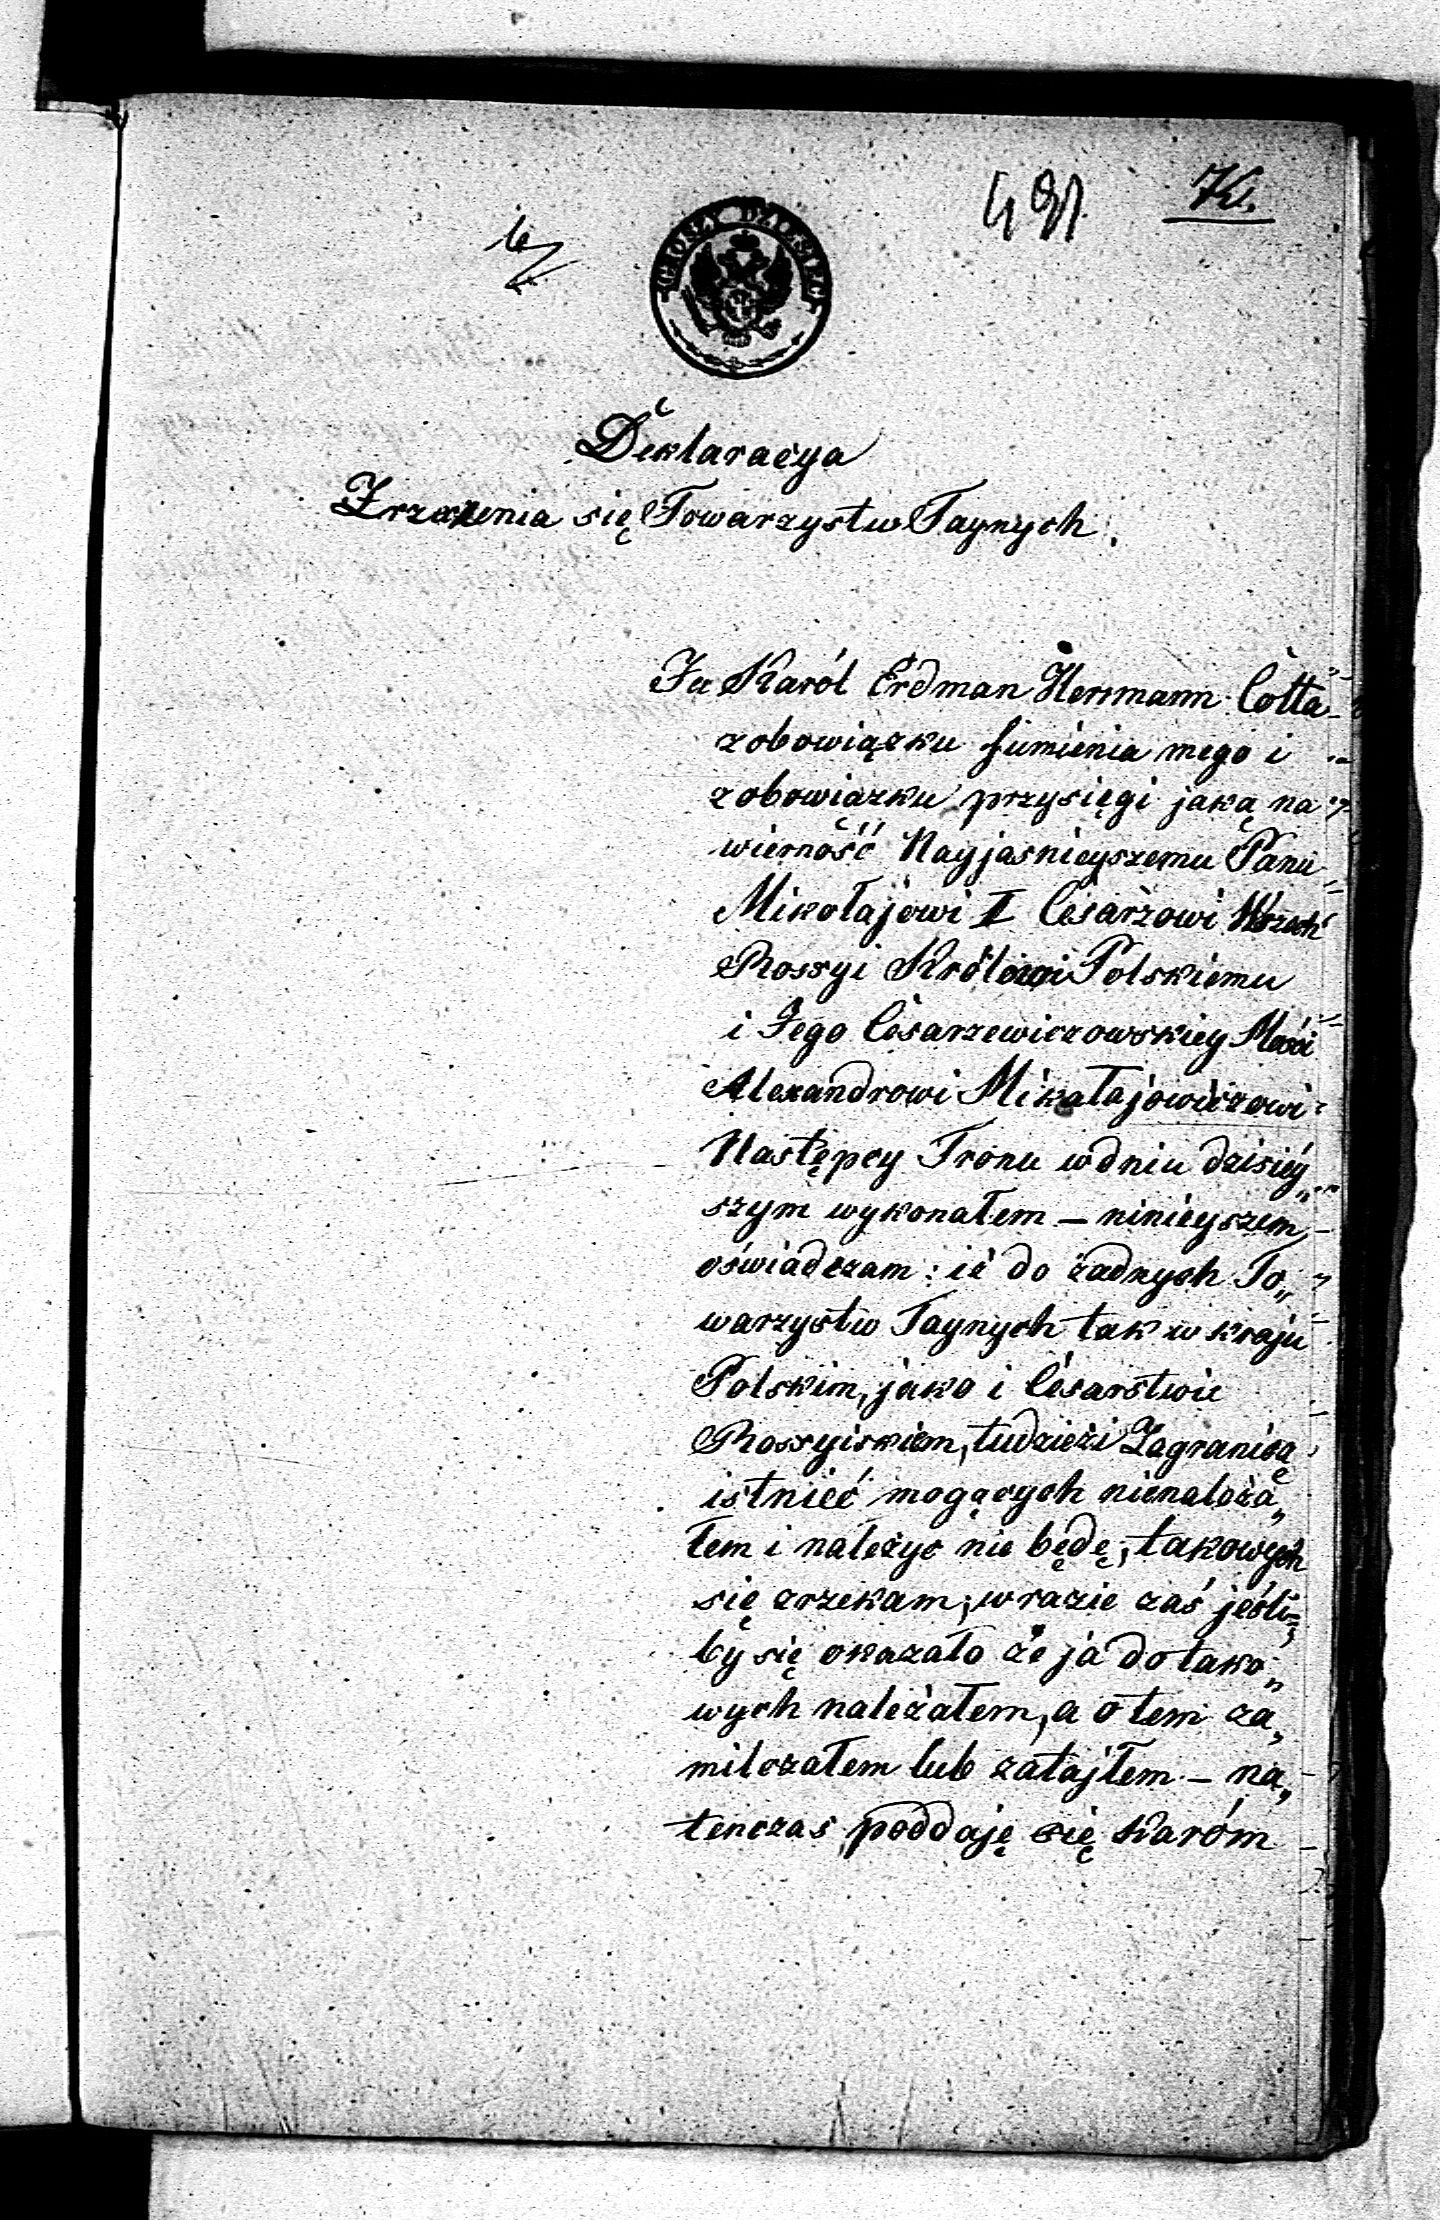 GROSZY DZIESIĘĆ
Deklaracya
Zrzeczenia się Towarzystw Taynych.
Ja Karól Erdman Herrmann Cotta
zobowiązku sumienia mego i
zobowiązku przysięgi jaką na
wierność Nayjasnieyszemu Panu
Mikołajowi I Cesarzowi Wszech
Rossyi Królowi Polskiemu
i Jego Cesarzewiczowskiey Mości
Alexandrowi Mikołajowiczowi
Następcy Tronu wdniu dzisiéy„
szym wykonałem – ninieyszem
oświadczam: ié do żadnych To„
warzystw Taynych tak w kraju
Polskim, jako i Césarstwie
Rossyiskiem, tudzież i Zagranicą
istnieć mogących nienależa„
łem i należyc nie będę, takowych
się zrzekam; w razie zaś jeśli„
by się okazało że ja do tako„
wych należałem, a o tem za„
milczałem lub zatajłem – na„
tenczas poddaję się karóm